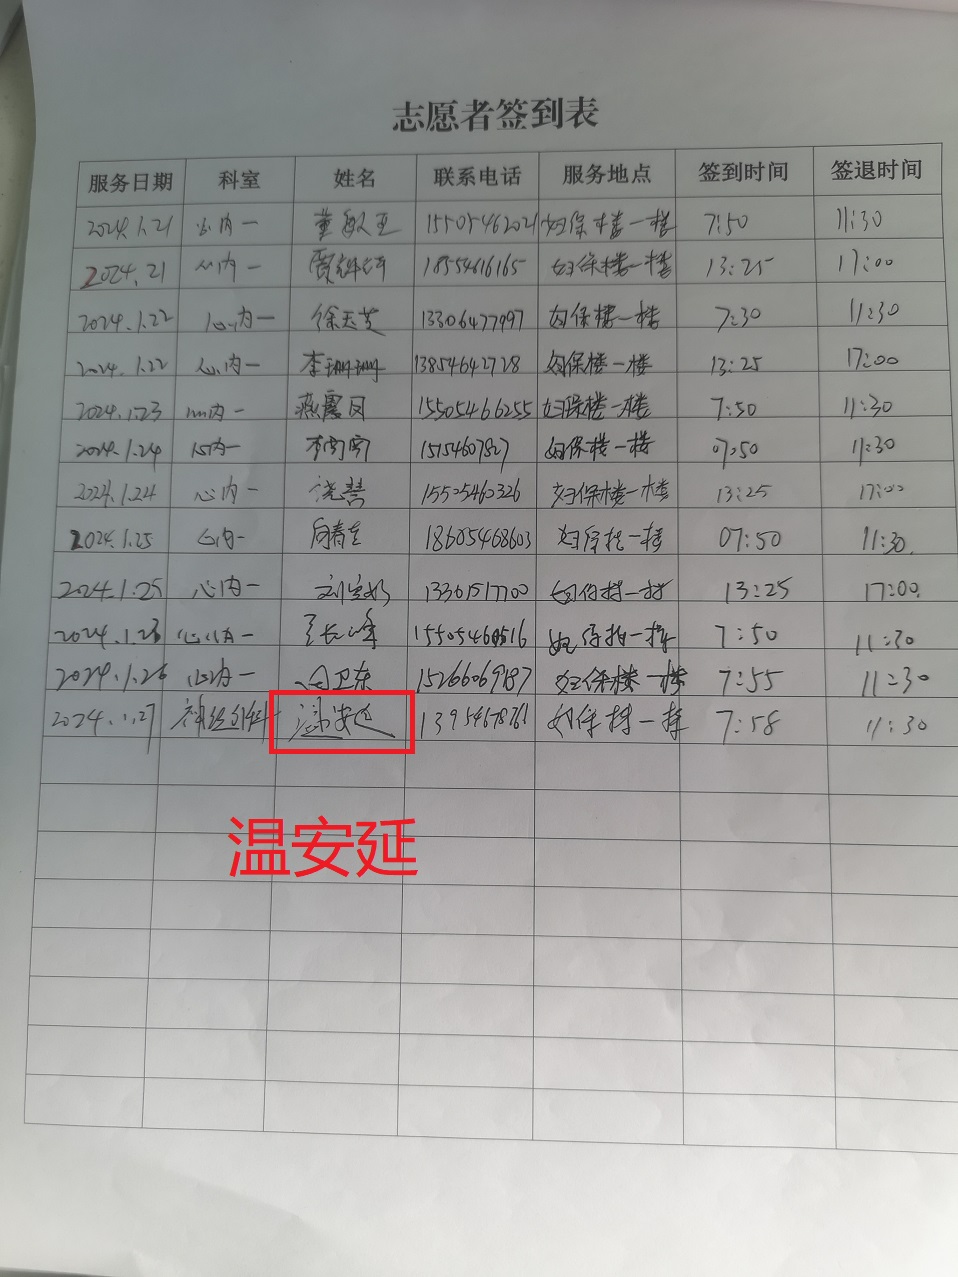 志愿者签到表
服务日期 科室 姓名 联系电话 服务地点 签到时间 签退时间
2024.1.21 心内一 董敏玉 15505462021 妇保楼一楼 7:50 11:30
2024.21 心内一 18554616165 妇保楼一楼 13:25 17:00
2024.1.22 心内一 徐玉芝 13306477997 妇保楼一楼 7:30 11:30
2024.1.22 心内一 李珊珊 13854642728 妇保楼一楼 13:25 17:00
2024.1.23 心内一 燕霞凤 15505466255 妇保楼一楼 7:50 11:30
2024.1.24 心内一 15154607827 妇保楼一楼 07:50 11:30
2024.1.24 心内一 15505460326 妇保楼一楼 13:25 17:00
2024.1.25 心内一 18605468603 妇保楼一楼 07:50 11:30
2024.1.25 心内一 13361517700 妇保楼一楼 13:25 17:00
2024.1.23 心内一 妇保楼一楼 7:50 11:30
2024.1.26 心内一 15266069187 妇保楼一楼 7:55 11:30
2024.1.27 神经外科 温安延 13954678761 妇保楼一楼 7:58 11:30
温安延